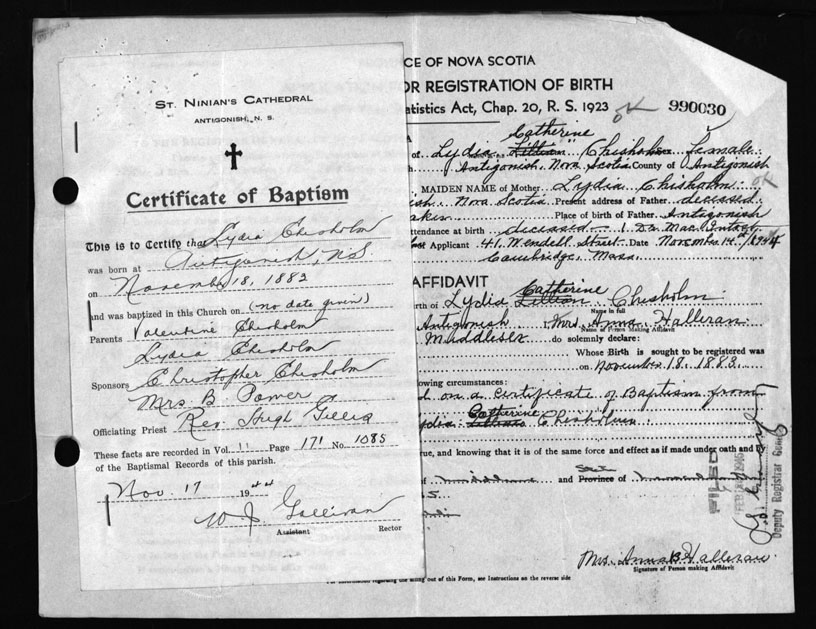 St. Ninian's Cathedral
ANTIGONISH, N. S.
Certificate of Baptism
This is to Certify that Lydia Chisholm
was born at Antigonish, N.S.
on November 18, 1882
and was baptized in this Church on (no date given)
Parents Valentine Chisholm
Lydia Chisholm
Sponsors Christopher Chisholm
Mrs. B. Power
Officiating Priest Rev. Hugh Gillis
These facts are recorded in Vol. 11 Page 171 No. 1085
of the Baptismal Records of this parish.
Nov. 17 1944
W J Gallivan
Assistant Rector
CE OF NOVA SCOTIA
OR REGISTRATION OF BIRTH
tatistics Act, Chap. 20, R. S. 1923
ok 990030
Catherine
of Lydia Lillian Chisholm Female
Antigonish, Nova Scotia County of Antigonish
MAIDEN NAME of Mother Lydia Chisholm
ish Nova Scotia Present address of Father deceased
Place of birth of Father Antigonish
ttendance at birth deceased Dr. Mac
Applicant 41 Wendell Street Date November 14th
Cambridge, Mass.
AFFIDAVIT
Catherine
rth of Lydia Lillian Chisholm
Name in full
Antigonish I, Mrs. Anna Halleran
Name of Person Making Affidavit
Middlesex do solemnly declare:
Whose Birth is sought to be registered was
on November 18, 1883
llowing circumstances:
d on a certificate of Baptism from
Catherine
ydia Lillian Chisholm
rue, and knowing that it is of the same force and effect as if made under oath and by
of and Province of
FILED
Deputy Registrar General
Mrs. Anna B Halleran
Signature of Person making Affidavit
For information regarding the filling out of this Form, see Instructions on the reverse side